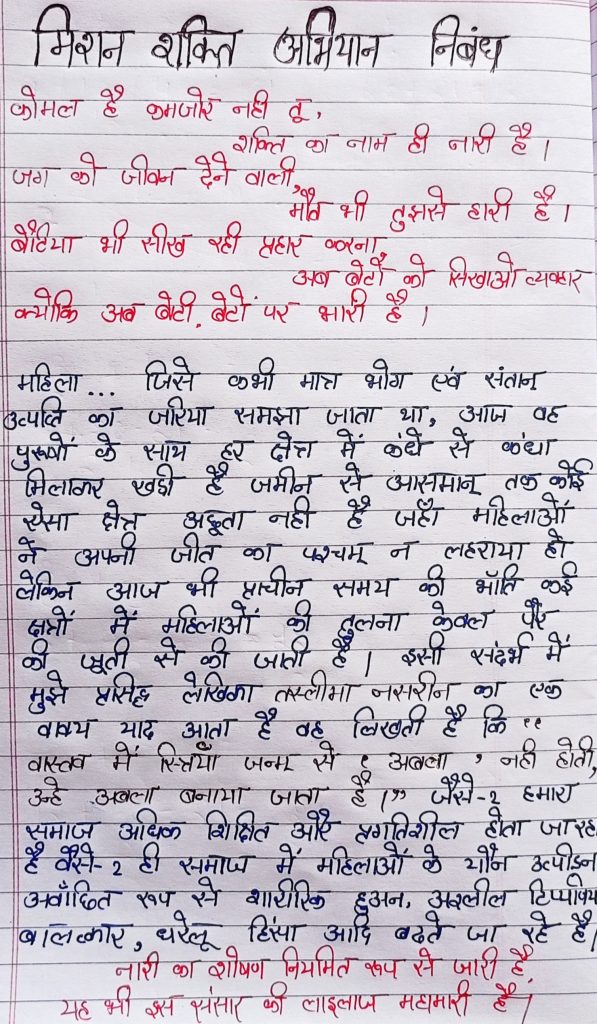 मिशन शक्ति अभियान निबंध
कोमल है कमजोर नही तू,
शक्ति का नाम ही नारी है।
जग को जीवन देने वाली,
मौत भी तुझसे हारी है।
बेटिया भी सीख रही प्रहार करना,
अब बेटों को सिखाओ व्यवहार
क्योकि अब बेटी, बेटों पर भारी है।
महिला... जिसे कभी मात्र भोग एवं संतान
उत्पत्ति का जरिया समझा जाता था, आज वह
पुरुषों के साथ हर क्षेत्र में कंधे से कंधा
मिलाकर खडी है जमीन से आसमान तक कोई
ऐसा क्षेत्र अछूता नही है जहाँ महिलाओं
ने अपनी जीत का परचम न लहराया हो
लेकिन आज भी प्राचीन समय की भाँति कई
क्षत्रों में महिलाओं की तुलना केवल पैर
की जूती से की जाती है। इसी संदर्भ में
मुझे प्रसिद्ध लेखिका तस्लीमा नसरीन का एक
वाक्य याद आता है वह लिखती है कि "
वास्तव में स्त्रियाँ जन्म से ' अबला ' नही होती,
उन्हे अबला बनाया जाता है।" जैसे-2 हमारा
समाज अधिक शिक्षित और प्रगतिशील होता जा रह
है वैसे-2 ही समाज में महिलाओं के यौन उत्पीडन
अवाँछित रूप से शारीरिक छुअन, अश्लील
बालत्कार, घरेलू हिंसा आदि बढते जा रहे है।
नारी का शोषण नियमित रूप से जारी है,
यह भी इस संसार की लाइलाज महामारी है।